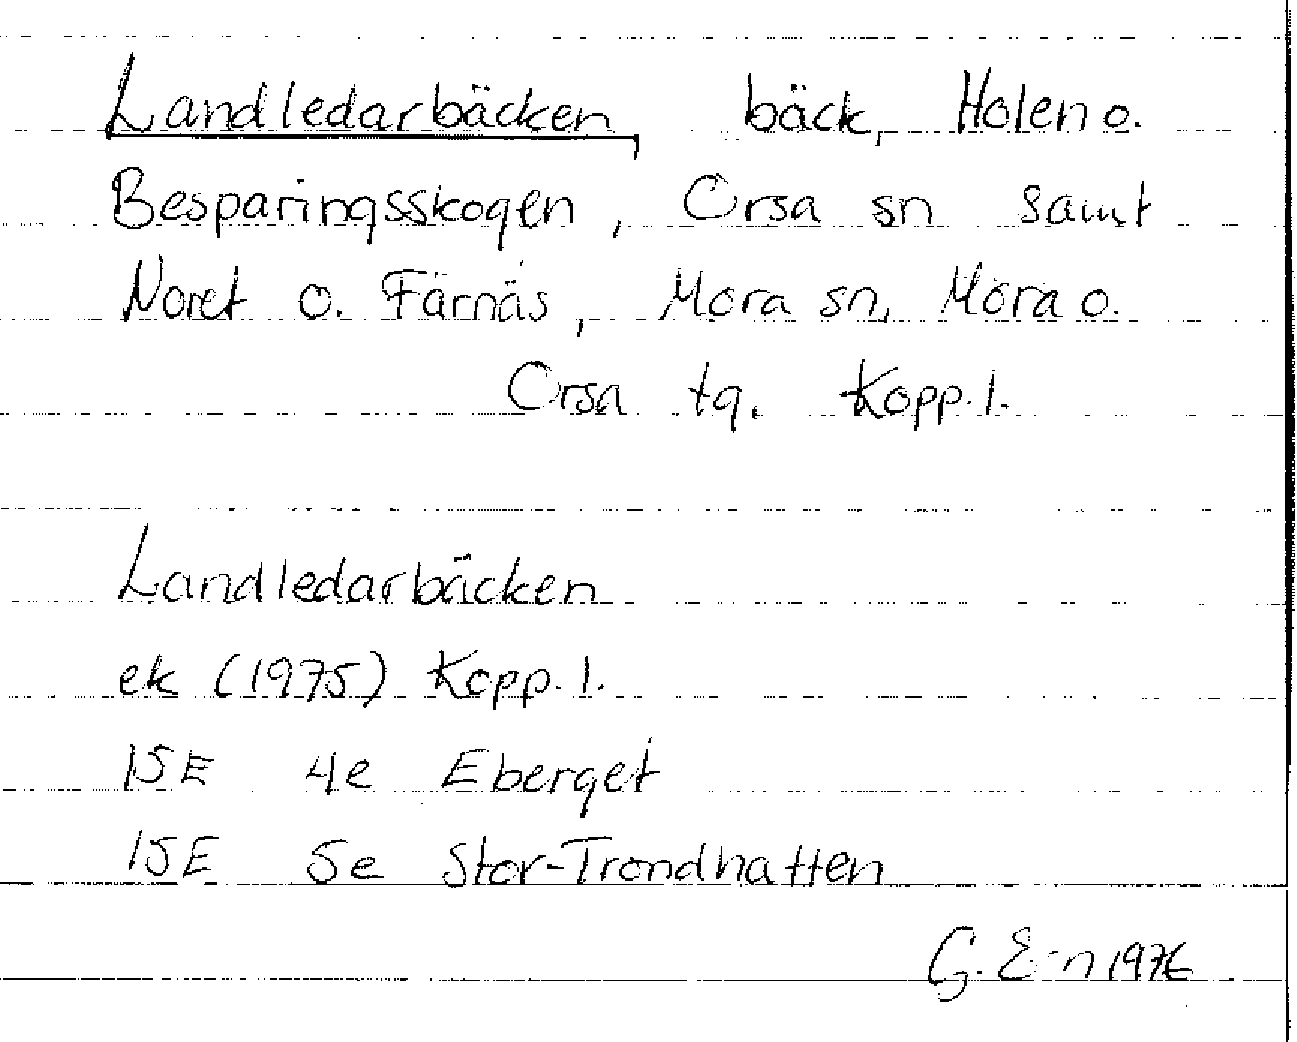 Landledarbäcken, bäck, Holen o.
Besparingsskogen, Orsa sn samt
Noret o. Färnäs, Mora sn, Mora o.
Orsa tg. Kopp. l.
Landledarbäcken
ek (1975) Kopp. l.
15E 4e Eberget
15E 5e Stor-Trondhatten
G. E-n 1976